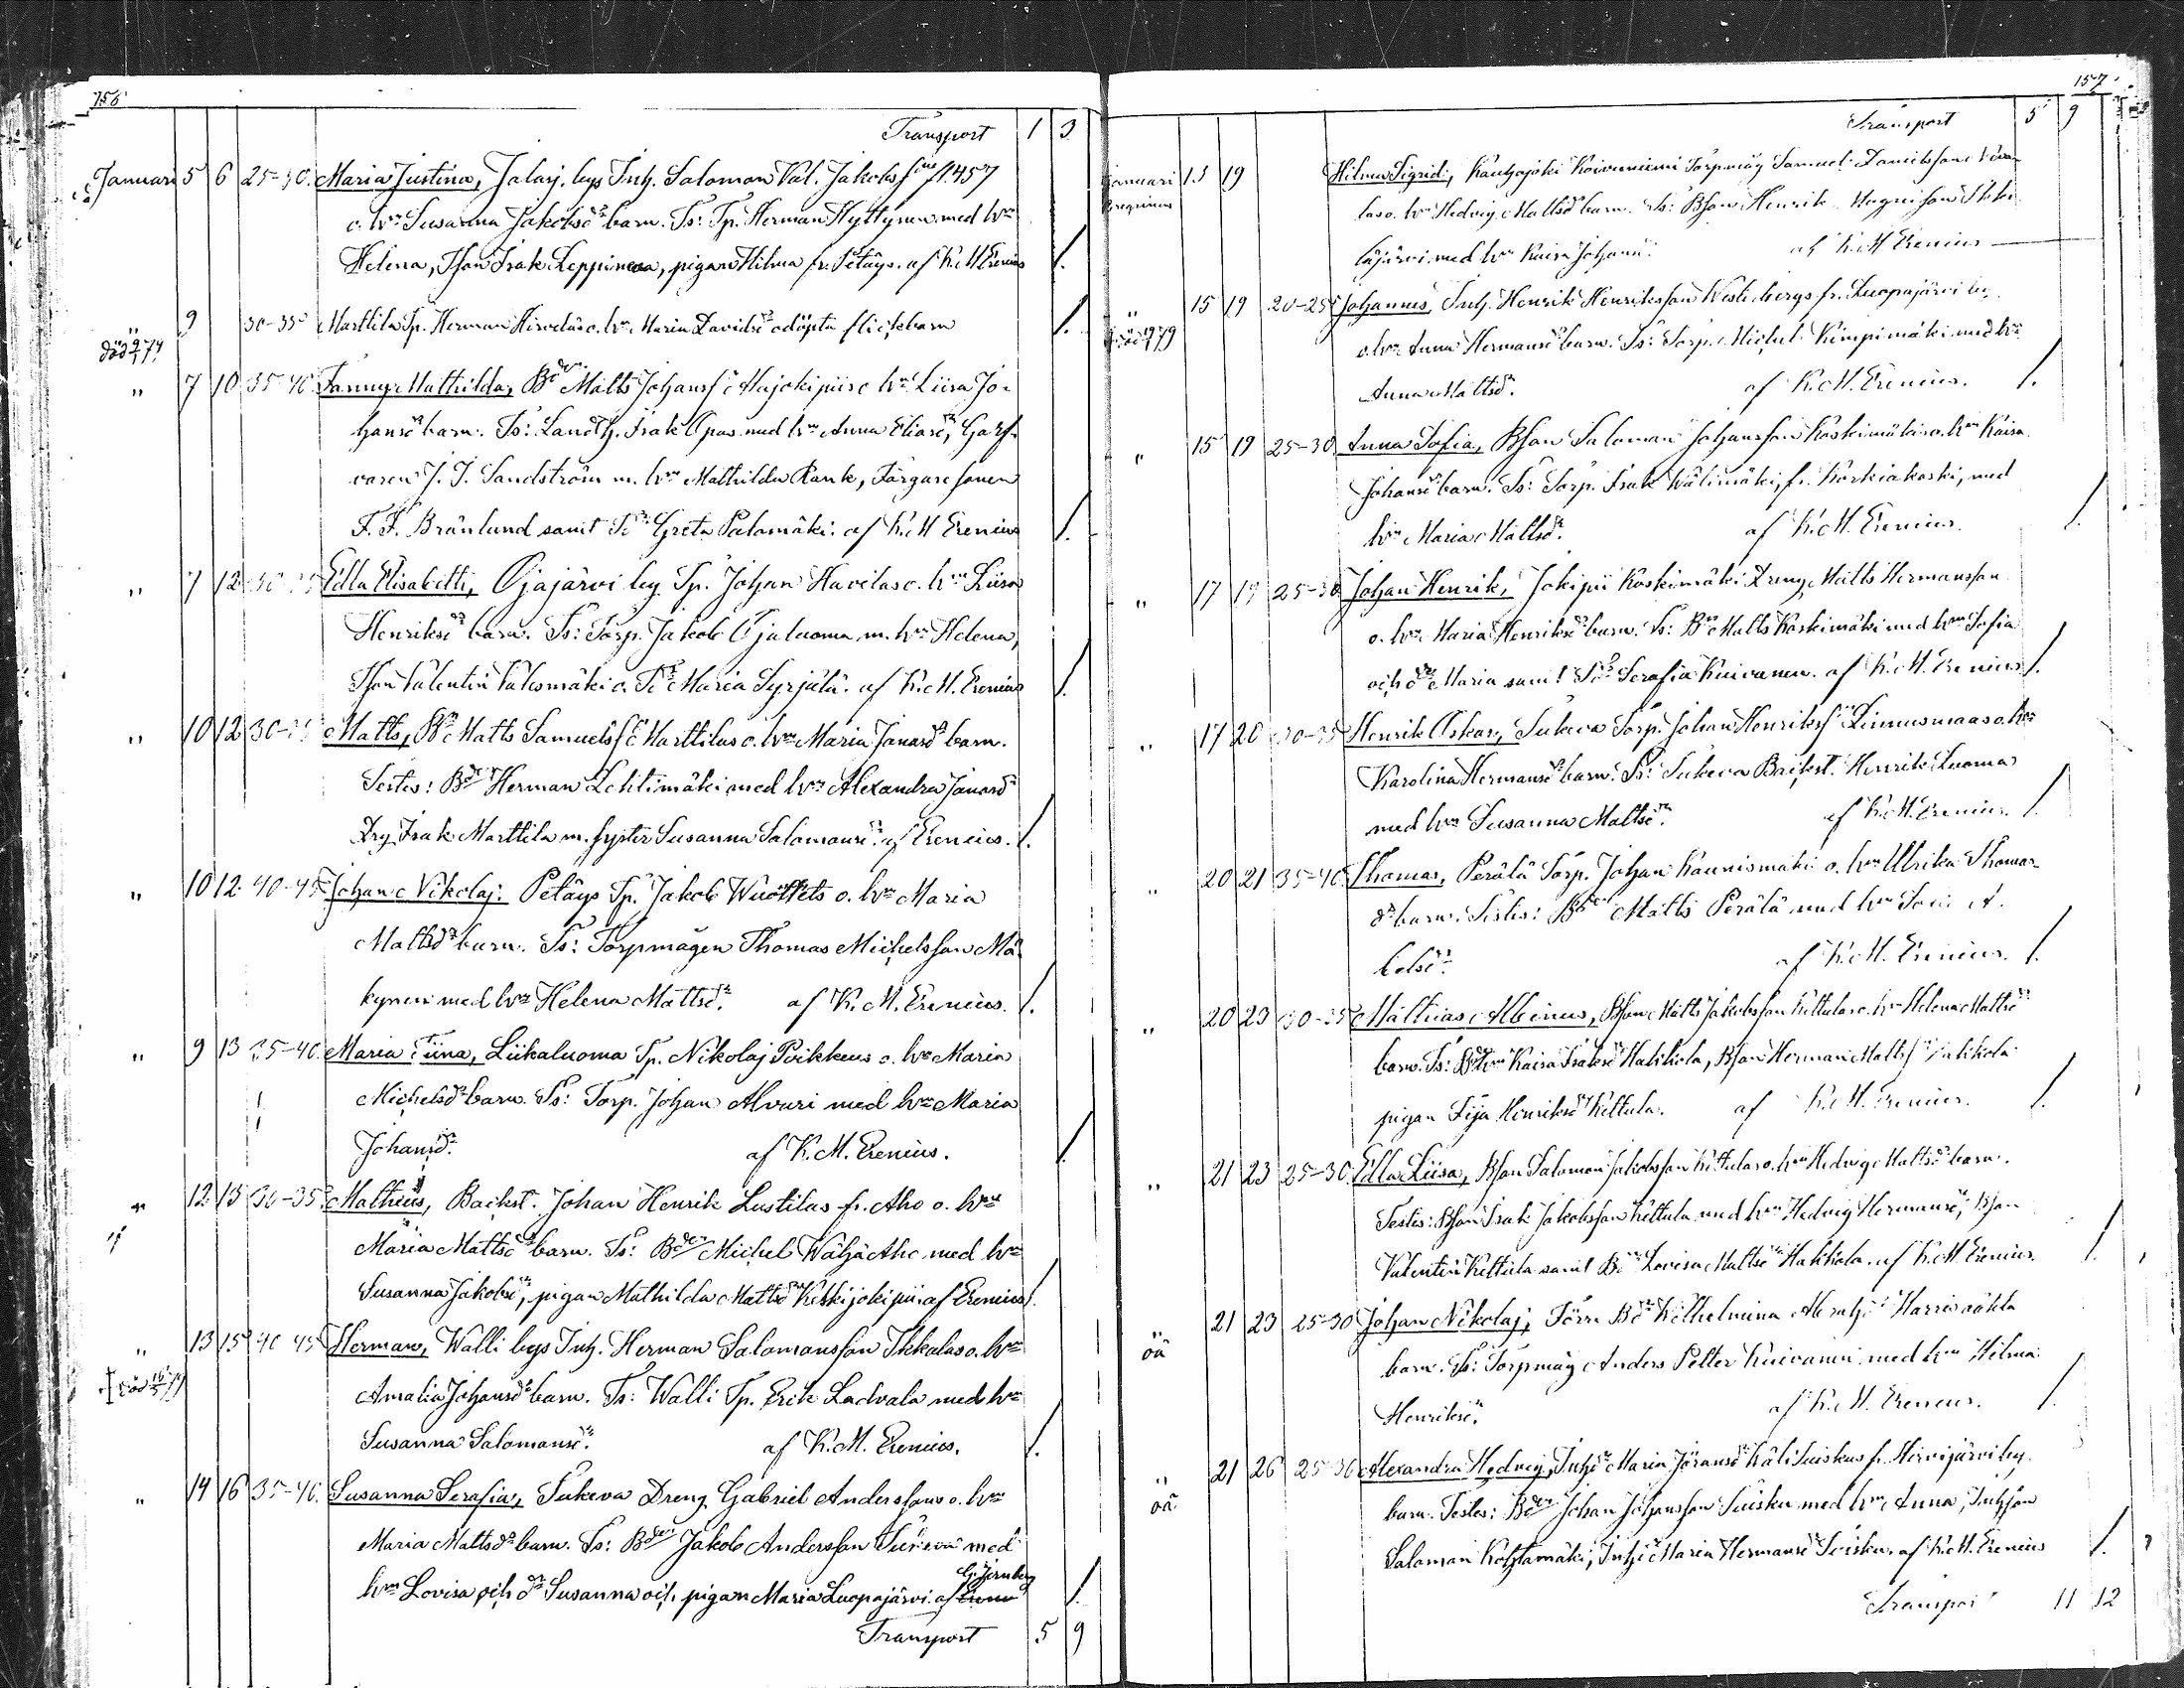 156
Transport 1 3
Januari 5 6 25-30. Maria Justina, Jalasj. bys Inh. Salomon Val. Jakobss fl. 457
o. hrs Susanna Jakobsdrs barn. Ts: Tp. Herman Hyttynen med hru
Helena, Json Isak Leppinen, pigan Hilma fr. Petäys. af K. M. Erenius /.
9 30-35 Marttila Tp. Herman Hirvelas o. hrs Maria Davidsds odöpta flickebarn /.
död 9/1 79
" 7 10 35-40 Fanny Mathilda, Bden Matts Johanss Alajokipiis o hrs Liisa Jo-
hansds barn. Ts: Landth. Isak Opas med hru Anna Eliasdr, Garf-
varen J. J. Sandström m. hru Mathilda Rank, Färgaresonen
F. F. Bränlund samt Greta Palomäki. af K. M Erenius /.
" 7 12 30-35 Edla Elisabetti, Ojajärvi by Tp. Johan Havilas o. hrs Liisa
Henriksds barn. Ts: Torp. Jakob Ojaluoma m. hru Helena,
Json Valentin Valesmäki o. Maria Syrjälä. af K. M. Erenius /.
" 10 12 30-35 Matts, Bdns Matts Samuelss Marttilas o. hrs Maria Jonasds barn.
Testes: Bden Herman Lehtimäki med hru Alexandra Jonasdr
Drg Isak Marttila m. syster Susanna Salomonsdr. af Erenius. /.
" 10 12 40-45 Johan Nikolaj. Petäys Tp. Jakob Wuottets o. hrs Maria
Mattsds barn. Ts: Torpmågen Thomas Michelsson Mä-
kynen med hru Helena Mattsdr. af K. M. Erenius. /.
" 9 13 35-40. Maria Tiina, Liikaluoma Tp. Nikolaj Poikkeus o. hrs Maria
Michelsds barn. Ts: Torp. Johan Alvari med hru Maria
Johansdr. af K. M. Erenius. /.
" 12 15 30-35 Matheus, Backst. Johan Henrik Lustilas fr. Aho o. hrs
Maria Mattsds barn. Ts: Bden Michel WähäAho med hru
Susanna Jakobsdr, pigan Mathilda Mattsdr Keskijokipii af Erenius /.
" 13 15 40-45 Herman, Walli bys Inh. Herman Salomonsson Ikkalas o. hrs
död 16/5 79
Amalia Johansds barn. Ts: Walli Tp. Erik Ladvala med hru
Susanna Salomonsdr. af K. M. Erenius. /.
" 14 16 35-40. Susanna Serafia, Tukeva Dreng Gabriel Anderssons o. hrs
Maria Mattsds barn. Ts: Bden Jakob Andersson Tukeva med
G. Jernberg
hru Lovisa och dr Susanna och pigan Maria Luopajärvi. af /.
Transport 5 9
157
Transport 5 9
Januari 13 19 Hilma Sigrid, Kauhajoki Koivuniemi Torpmåg Samuel Danielsson
las o. hrs Hedvig Mattsds barn. Ts: Bson Henrik
lajärvi med hru Kaisa Johansdr. af K. M Erenius
" 15 19 20-25 Johannes, Inh. Henrik Henriksson Westerbergs fr. Luopajärvi by
o. hrs Anna Hermansds barn. Ts: Torp. Michel Kimpimäki med hru
Anna Mattsdr. af K. M. Erenius. /.
" 15 19 25-30 Anna Sofia, Bson Salomon Johansson Koskimäkis o. hrs Kaisa
Johansds barn. Ts: Torp. Isak Wälimäki, fr. Korkiakoski, med
hru Maria Mattsdr. af K. M. Erenius. /.
" 17 19 25-30 Johan Henrik, Jokipii Koskimäki Dreng Matts Hermansson
o. hrs Maria Henriksds barn. Ts: Bden Matts Koskimäki med hru Sofia
och dr Maria samt Serafia Kuivanen. af K. M. Erenius /.
" 17 20 30-35 Henrik Oskar, Tukeva Torp. Johan Henrikss Linnusmaas o hrs
Karolina Hermansds barn. Ts: Tukeva Backst. Henrik Luoma
med hru Susanna Mattsdr. af K. M. Erenius. /.
" 20 21 35-40 Thomas, Perälä Torp. Johan Kaunismäki o. hrs Ulrika Thomas-
ds barn. Testes: Bden Matts Perälä med hru
kobsdr. af K. M. Erenius. /.
" 20 23 30-35 Mathias Albinus, Bson Matts Jakobsson Kettulas o. hrs Helena Mattsds
barn. Ts: Kaisa Isaksdr Hakkola, Bson Herman Mattss Hakkola
pigan Fija Henriksdr Kettula. af K. M. Erenius. /.
" 21 23 25-30. Edla Liisa, Bson Salomon Jakobsson Kettulas o. hrs Hedvig Mattsds barn.
Testes: Bson Isak Jakobsson Kettula med hru Hedvig Hermansdr, Bson
Valentin Kettula samt Lovisa Mattsdr Hakkola. af K. M. Erenius. /.
" 21 23 25-30 Johan Nikolaj, Wilhelmina
oä
barn. Ts: Torpmåg Anders Petter Kuivanen med hru Hilma
Henriksdr. af K. M. Erenius. /.
" 21 26 25-30 Alexandra Hedvig, Maria Göransdr fr. Hirvijärvi by
oä
barn. Testes: Bden Johan Johansson Luisku med hru Anna, Inhson
Salomon Kohtamäki, Maria Hermansdr Luisku. af K. M. Erenius /.
Transport 11 12